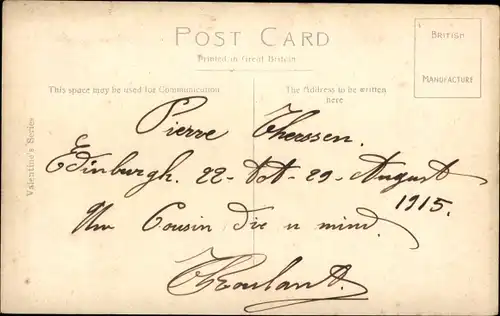 POST CARD
Printed in Great Britain
BRITISH
MANUFACTURE
This space may be used for Communication
The Address to be written
here
Valentine's Series
Pierre Therssen.
Edinburgh. 22- tot- 29- August
1915.
Um Cousin die u mind.